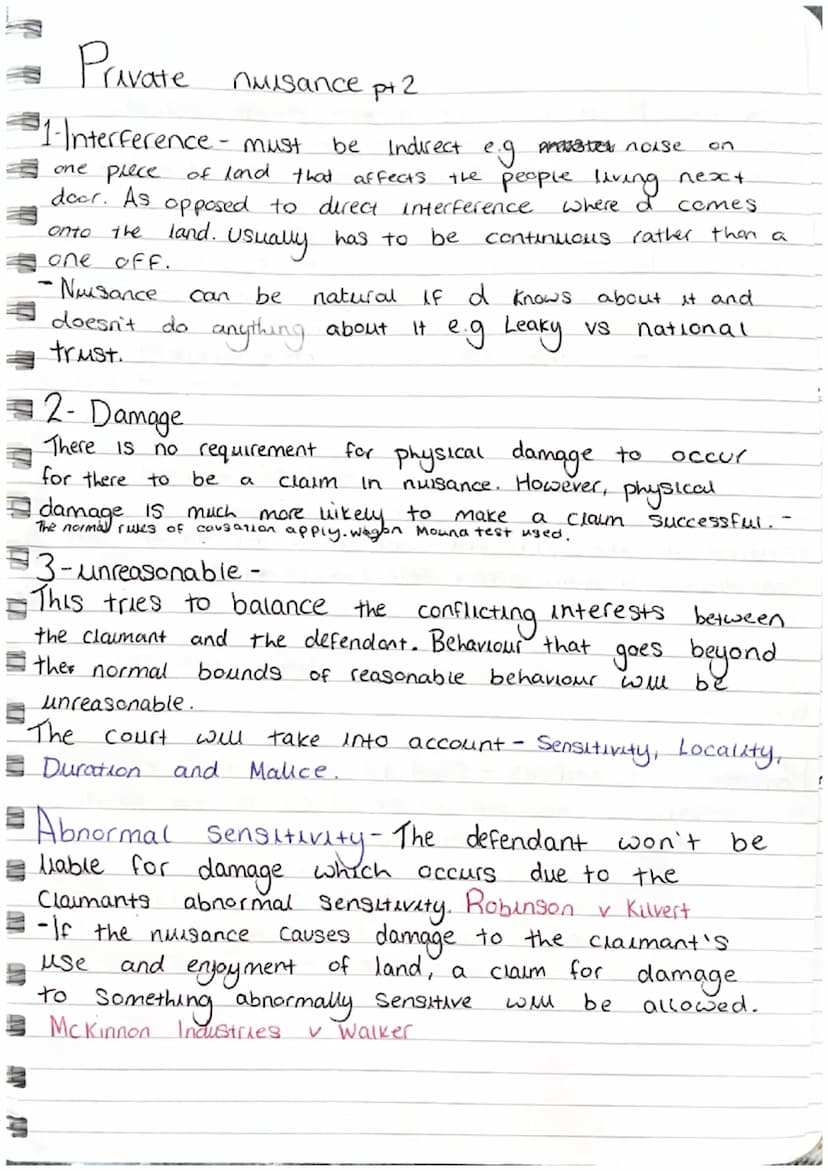 Private nuisance pt 2
1-Interference - must be Indirect e.g noise on
one piece of land that affects the people living next
door. As opposed to direct interference where d comes
onto the land. Usually has to be continuous rather than a
one off.
- Nuisance can be natural if d knows about it and
doesn't do anything about it e.g Leaky vs national
trust.
2- Damage
There is no requirement for physical damage to occur
for there to be a claim in nuisance. However, physical
damage is much more likely to make a claim successful. -
The normal rules of causation apply. wagon Mound test used.
3-unreasonable -
This tries to balance the conflicting interests between
the claimant and the defendant. Behaviour that goes beyond
the normal bounds of reasonable behaviour will be
unreasonable.
The court will take into account - Sensitivity, Locality,
Duration and Malice.
Abnormal sensitivity - The defendant won't be
liable for damage which occurs due to the
Claimants abnormal sensitivity. Robinson v Kilvert
- If the nuisance causes damage to the claimant's
use and enjoyment of land, a claim for damage
to something abnormally sensitive will be allowed.
McKinnon Industries v Walker